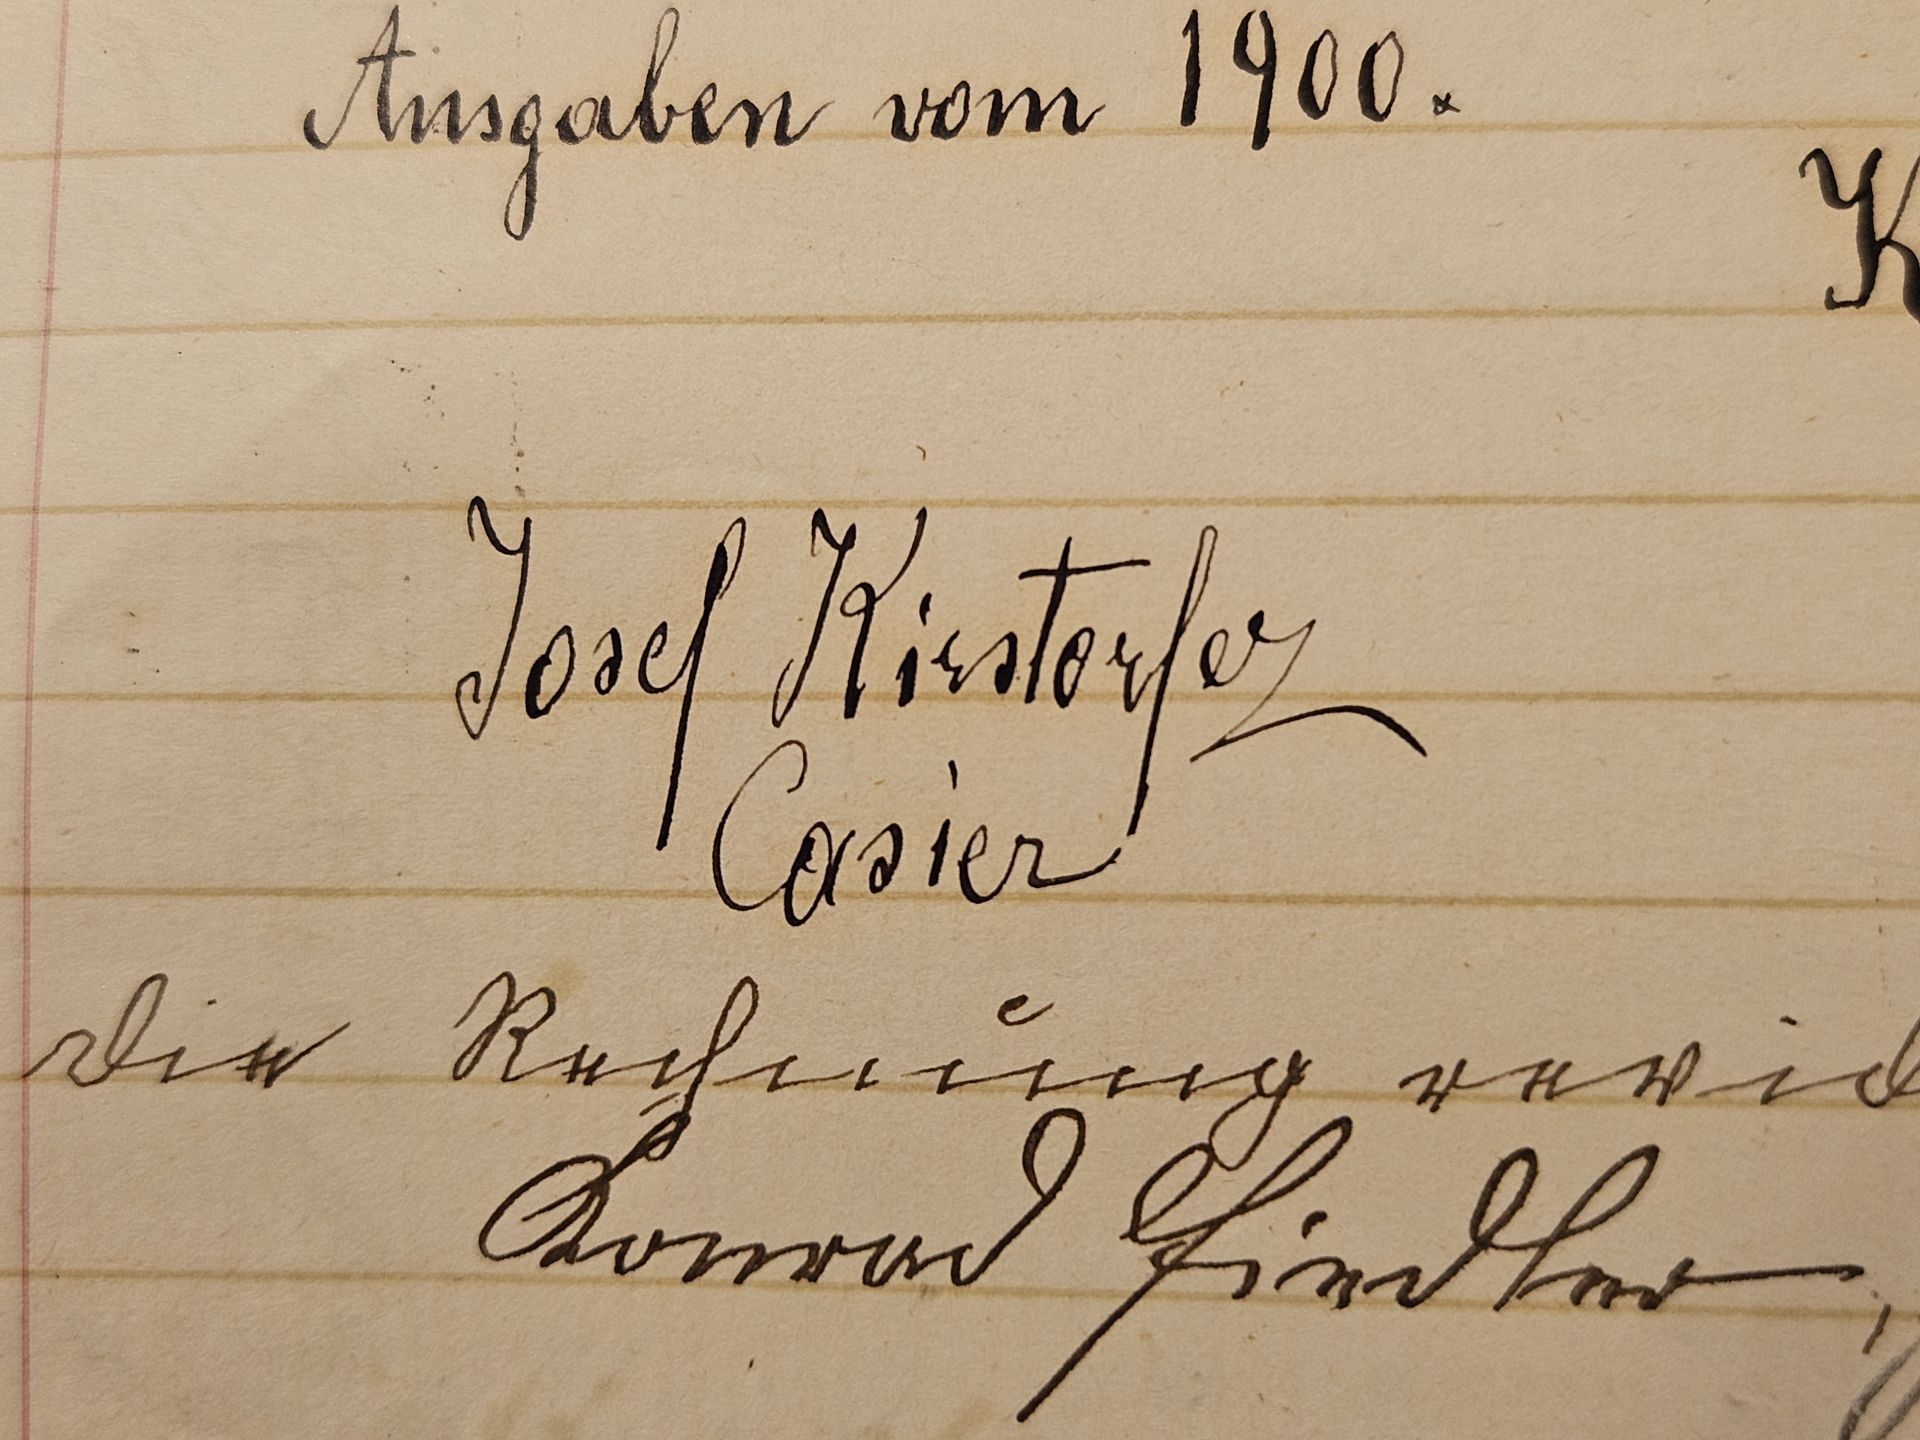 Ausgaben vom 1900.
K
Josef Kirstorfer
Casier
Die Rechnung revid
Konrad Fiedler,